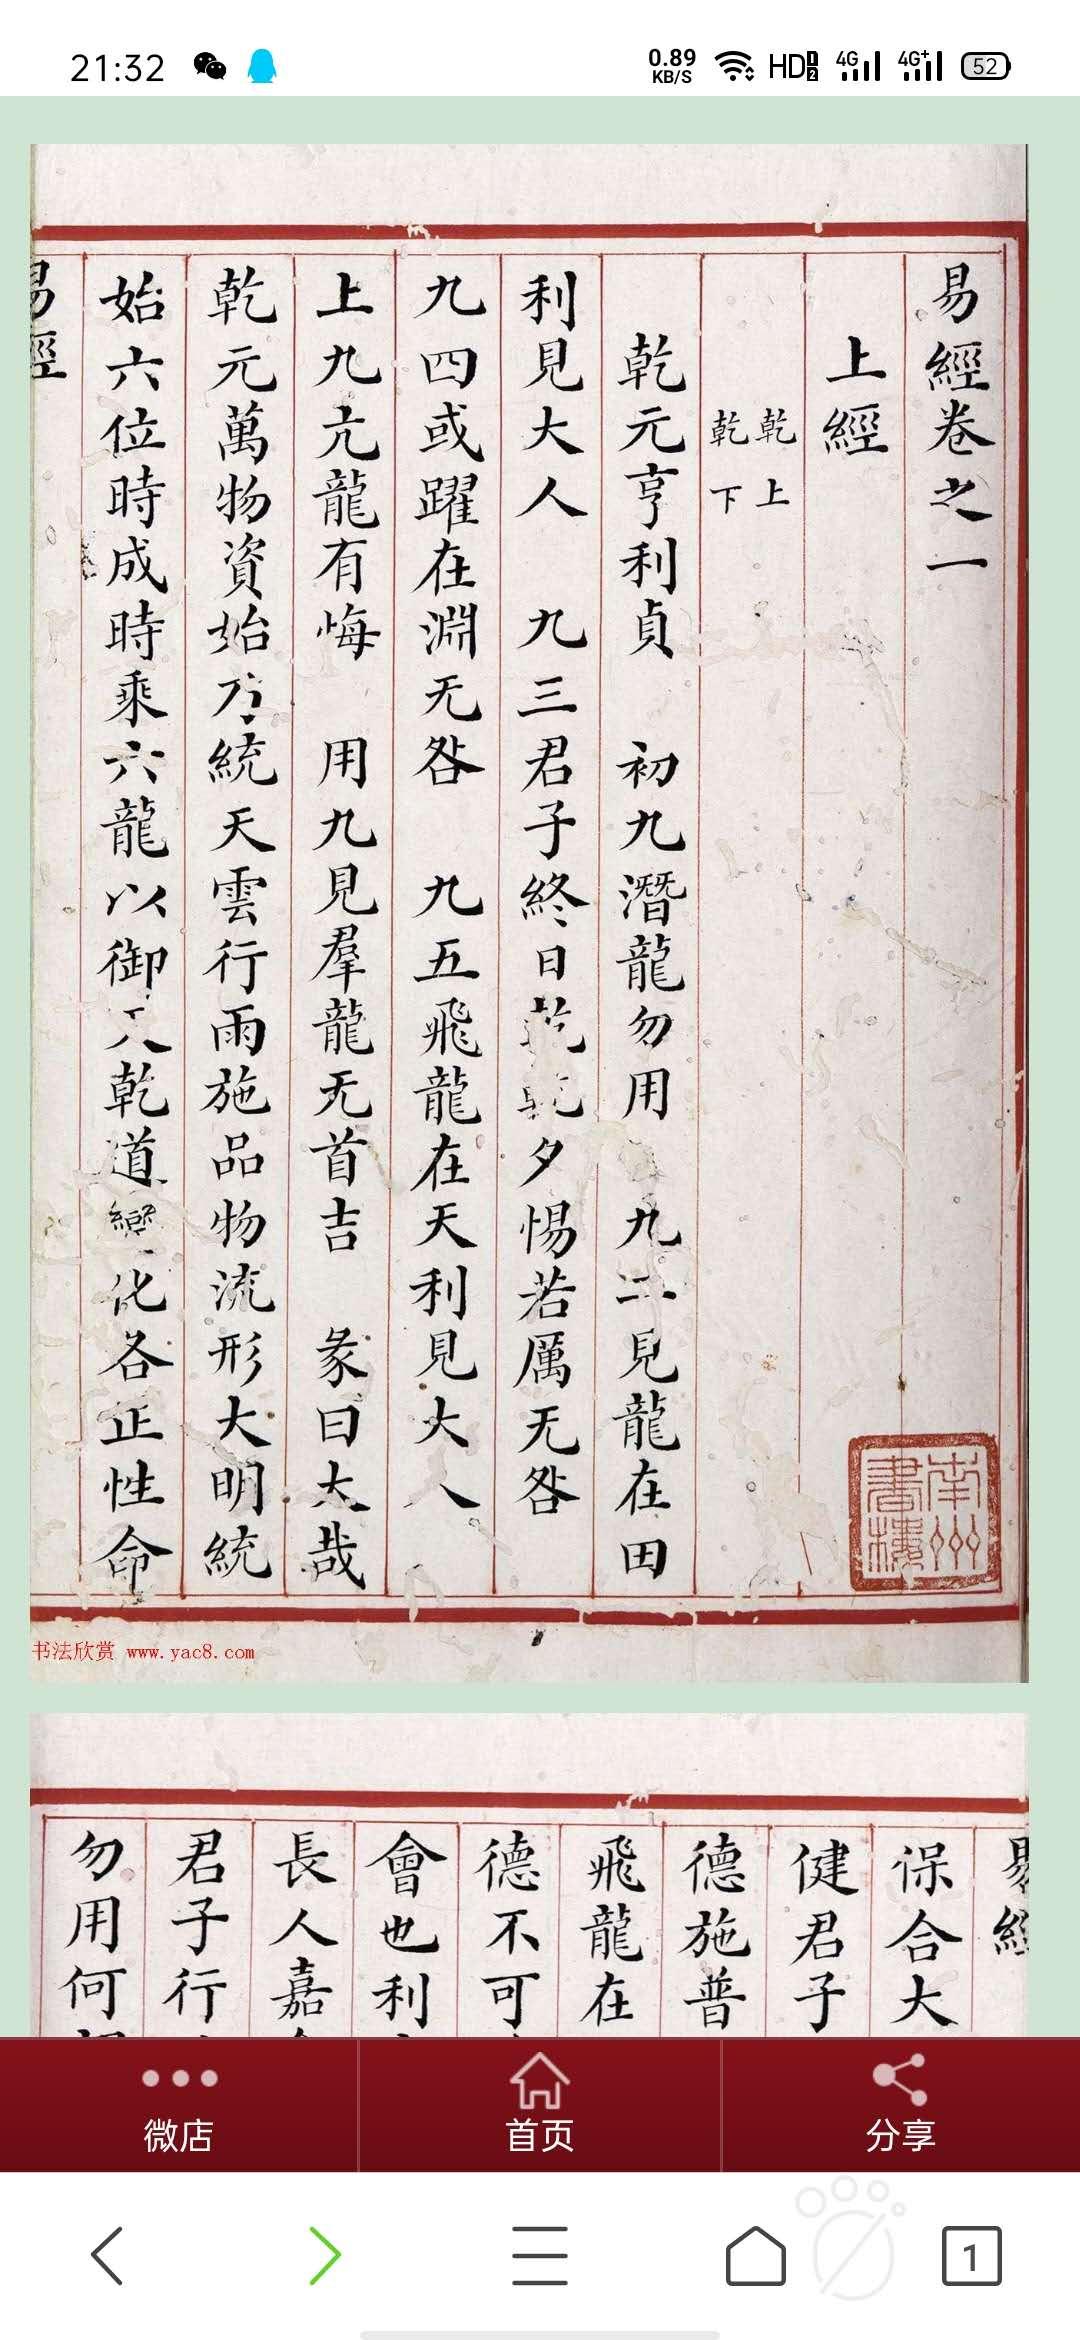 21:32
0.89
KB/S
HD
1
2
4G
4G+
52
易經卷之一
上經
乾上
乾下
乾元亨利貞 初九潛龍勿用 九二見龍在田
利見大人 九三君子終日乾乾夕惕若厲无咎
九四或躍在淵无咎 九五飛龍在天利見大人
上九亢龍有悔 用九見羣龍无首吉 彖曰大哉
乾元萬物資始乃統天雲行雨施品物流形大明統
始六位時成時乘六龍以御天乾道變化各正性命
易經
南州
書樓
书法欣赏 www.yac8.com
易經
保合大
健君子
德施普
飛龍在
德不可
會也利
長人嘉
君子行
勿用何
微店
首页
分享
1